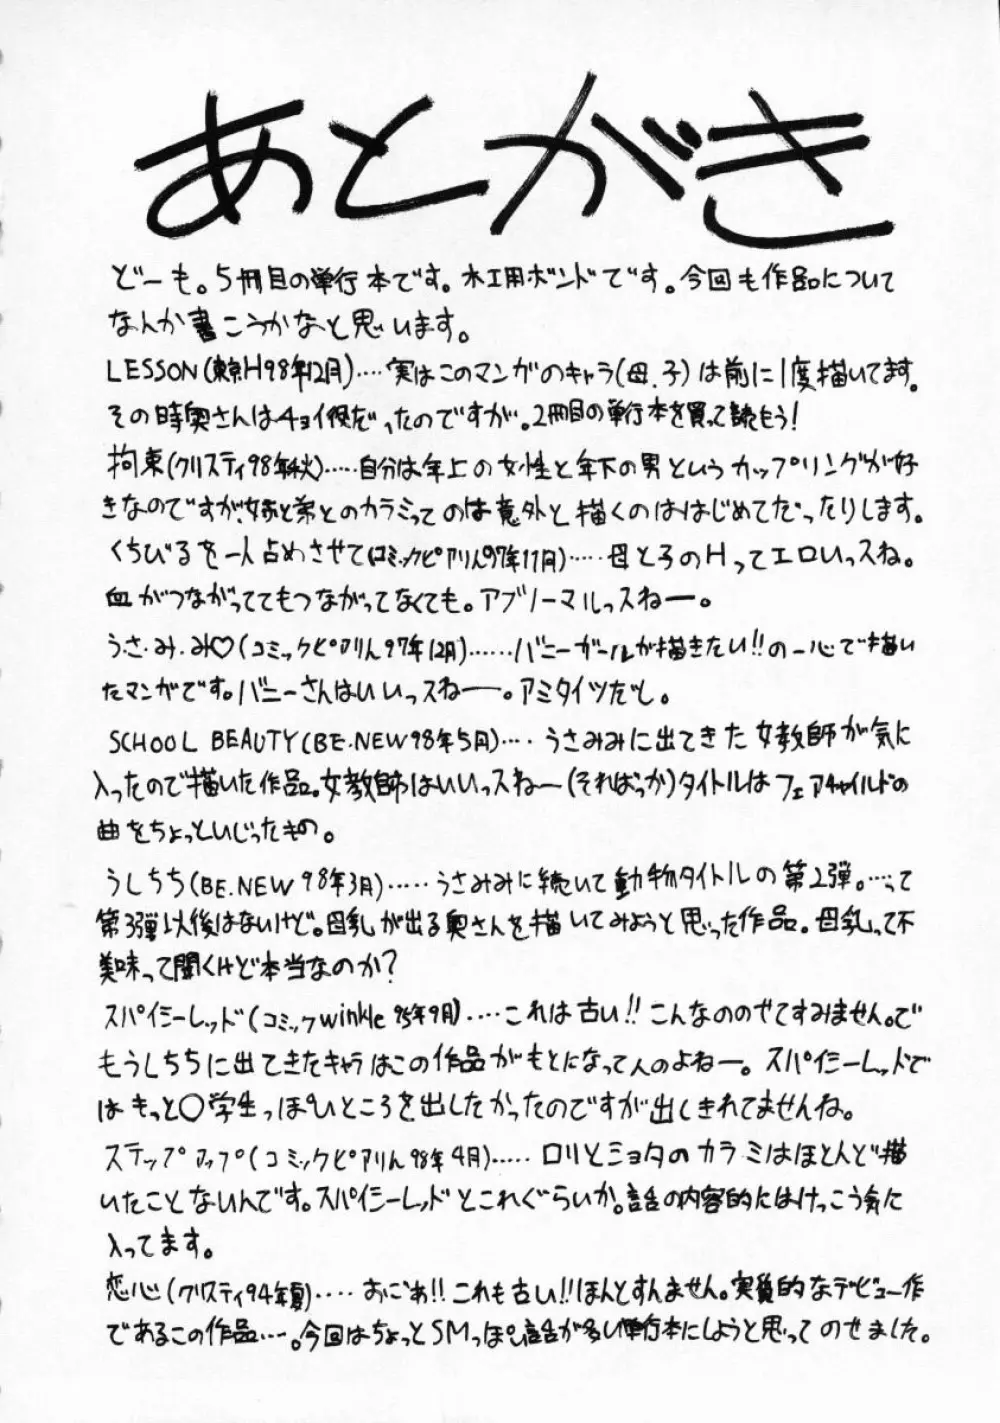 あとがき
どーも。5冊目の単行本です。木工用ボンドです。今回も作品について
なんか書こうかなと思います。
LESSON(東京H98年12月)‥‥実はこのマンガのキャラ(母、子)は前に1度描いてます。
その時奥さんはチョイ役だったのですが。2冊目の単行本を買って読もう!
拘束(クリスティ98年秋)‥‥‥自分は年上の女性と年下の男というカップリングが好
きなのですが、姉と弟とのカラミってのは意外と描くのははじめてだったりします。
くちびるを一人占めさせて(コミックピアリん97年11月)‥‥‥母と子のHってエロいっスね。
血がつながっててもつながってなくても。アブノーマルっスねー。
う・さ・み・み♡(コミックピアリん97年12月)‥‥‥バニーガールが描きたい!!の一心で描い
たマンガです。バニーさんはいいっスねー。アミタイツだし。
SCHOOL BEAUTY(BE.NEW98年5月)‥‥うさみみに出てきた女教師が気に
入ったので描いた作品。女教師はいいっスねー(そればっか)タイトルはフェアチャイルドの
曲をちょっといじったもの。
うしちち(BE.NEW98年3月)‥‥‥うさみみに続いて動物タイトルの第2弾。‥‥って
第3弾以後はないけど。母乳が出る奥さんを描いてみようと思った作品。母乳って不
美味って聞くけど本当なのか?
スパイシーレッド(コミックwinkle 95年9月)‥‥これは古い!!こんなののせてすみません。で
もうしちちに出てきたキャラはこの作品がもとになってんのよねー。スパイシーレッドで
はきっと○学生っぽいところを出したかったのですが出しきれてませんね。
ステップアップ(コミックピアリん98年4月)‥‥‥ロリとショタのカラミはほとんど描
いたことないんです。スパイシーレッドとこれぐらいか。話の内容的にはけっこう気に
入ってます。
恋心(クリスティ94年夏)‥‥おごぁ!!これも古い!!ほんとすんません。実質的なデビュー作
であるこの作品‥‥。今回はちょっとSMっぽい話が多い単行本にしようと思ってのせました。